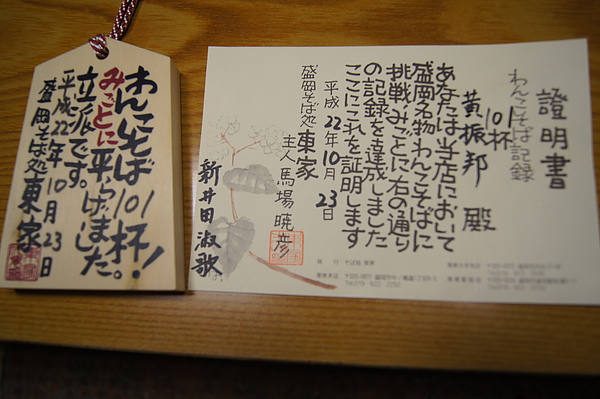 わんこそば101杯!
みごとに平らげました。
立派です。
平成22年10月23日
盛岡そば処東家
證明書
わんこそば記録
101杯
黄振邦 殿
あなたは当店において
盛岡名物わんこそばに
挑戦みごとに右の通り
の記録を達成しました
ここにこれを証明します
平成22年10月23日
盛岡そば処東家
主人 馬場暁彦
新井田淑歌